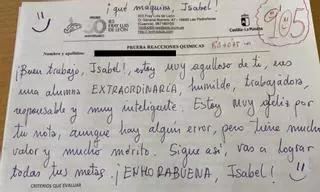 ¡qué máquina, Isabel!
IES FRAY LUIS DE LEÓN
Castilla-La Mancha
105
Nombre y apellidos:
PRUEBA REACCIONES QUÍMICAS
¡Buen trabajo, Isabel!, estoy muy orgulloso de ti, eres
una alumna EXTRAORDINARIA, humilde, trabajadora,
responsable y muy inteligente. Estoy muy feliz por
tu nota, aunque hay algún error, pero tiene mucho
valor y mucho mérito. Sigue así, vas a lograr
todas tus metas. ¡ENHORABUENA, Isabel!
CRITERIOS QUE EVALUAR